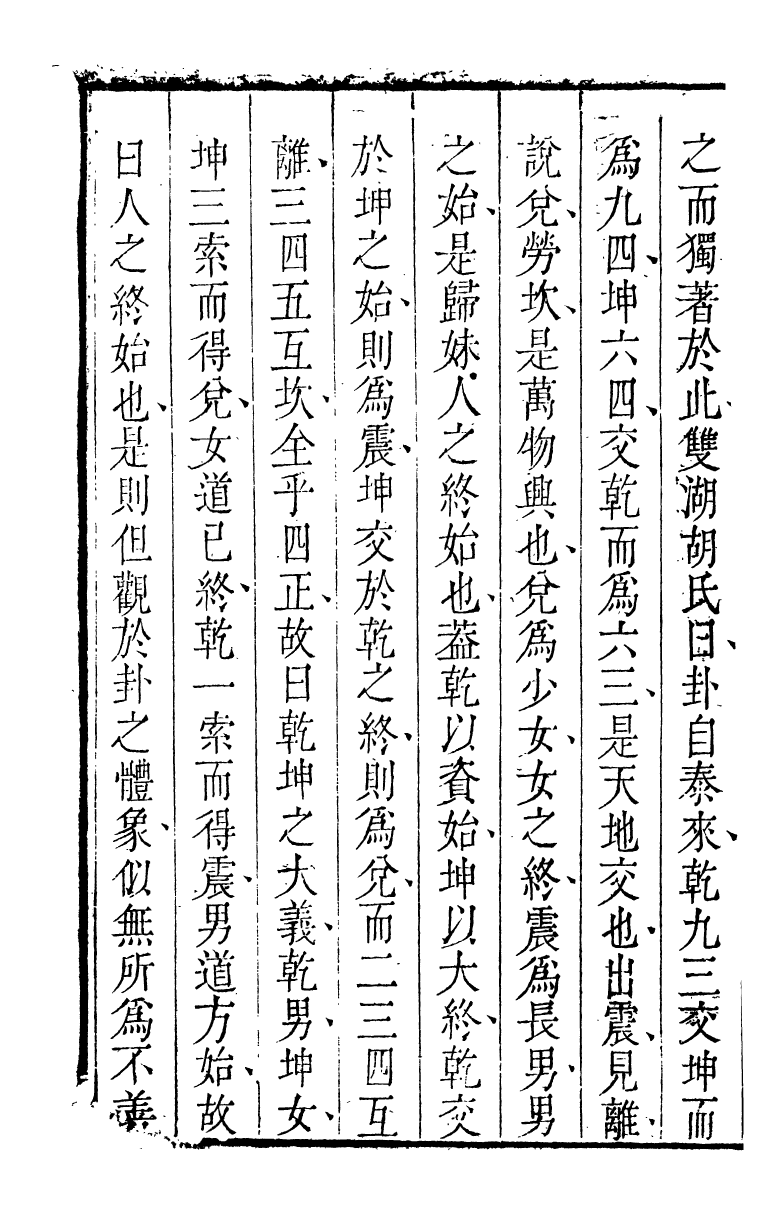 之而獨著於此雙湖胡氏曰卦自泰來乾九三交坤而
爲九四坤六四交乾而爲六三是天地交也出震見離
說兌勞坎是萬物興也兌爲少女女之終震爲長男男
之始是歸妹人之終始也葢乾以資始坤以大終乾交
於坤之始則爲震坤交於乾之終則爲兌而二三四互
離三四五互坎全乎四正故曰乾坤之大義乾男坤女
坤三索而得兌女道已終乾一索而得震男道方始故
曰人之終始也是則但觀於卦之體象似無所爲不善